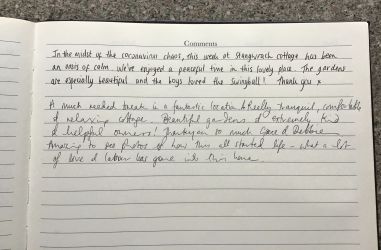 Comments
In the midst of the coronavirus chaos, this week at Stangwrach cottage has been
an oasis of calm. We've enjoyed a peaceful time in this lovely place. The gardens
are especially beautiful and the boys loved the Swingball! Thank you x
A much needed break in a fantastic location. A really tranquil, comfortable
& relaxing cottage. Beautiful gardens & extremely kind
& helpful owners! Thankyou so much & Debbie
Amazing to see photos of how this all started life - what a lot
of love & labour has gone into this home.